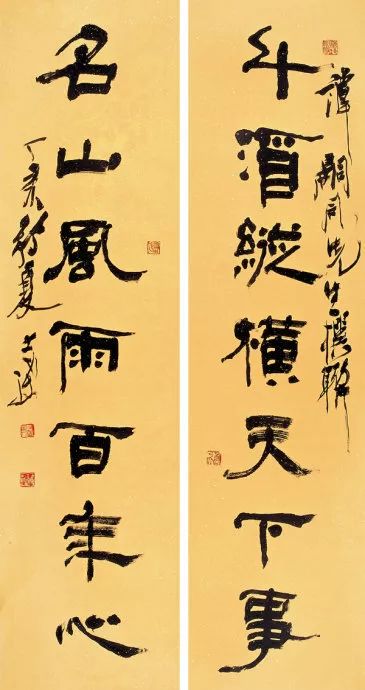 譚嗣同先生撰聯
斗酒縱橫天下事
名山風雨百年心
丁亥初夏士澍